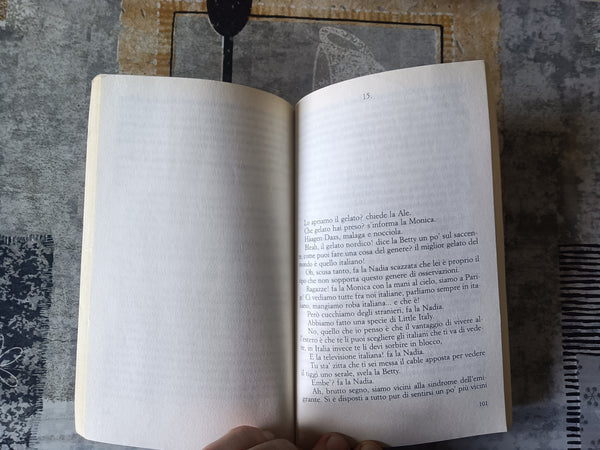 15.
Lo apriamo il gelato? chiede la Ale.
Che gelato hai preso? s'informa la Monica.
Häagen-Dazs, malaga e nocciola.
Bleah, il gelato nordico! dice la Betty un po' sul saccen-
te, come puoi fare una cosa del genere? il miglior gelato del
mondo è quello italiano!
Oh, scusa tanto, fa la Nadia scazzata che lei è proprio il
tipo che non sopporta questo genere di osservazioni.
Ragazze! fa la Monica con la mani al cielo, siamo a Pari-
gi! Ci vediamo tutte fra noi italiane, parliamo sempre in ita-
liano, mangiamo roba italiana... e che è!
Però cucchiamo degli stranieri, fa la Nadia.
Abbiamo fatto una specie di Little Italy.
No, quello che io penso è che il vantaggio di vivere al-
l'estero è che te li puoi scegliere gli italiani che ti va di vede-
re, in Italia invece te li devi sorbire in blocco,
E la televisione italiana! fa la Nadia.
Tu sta' zitta che ti sei messa il cable apposta per vedere
il riggi uno serale, svela la Betty.
Embe'? fa la Nadia.
Ah, brutto segno, siamo vicini alla sindrome dell'emi-
grante. Si è disposti a tutto pur di sentirsi un po' più vicini
101